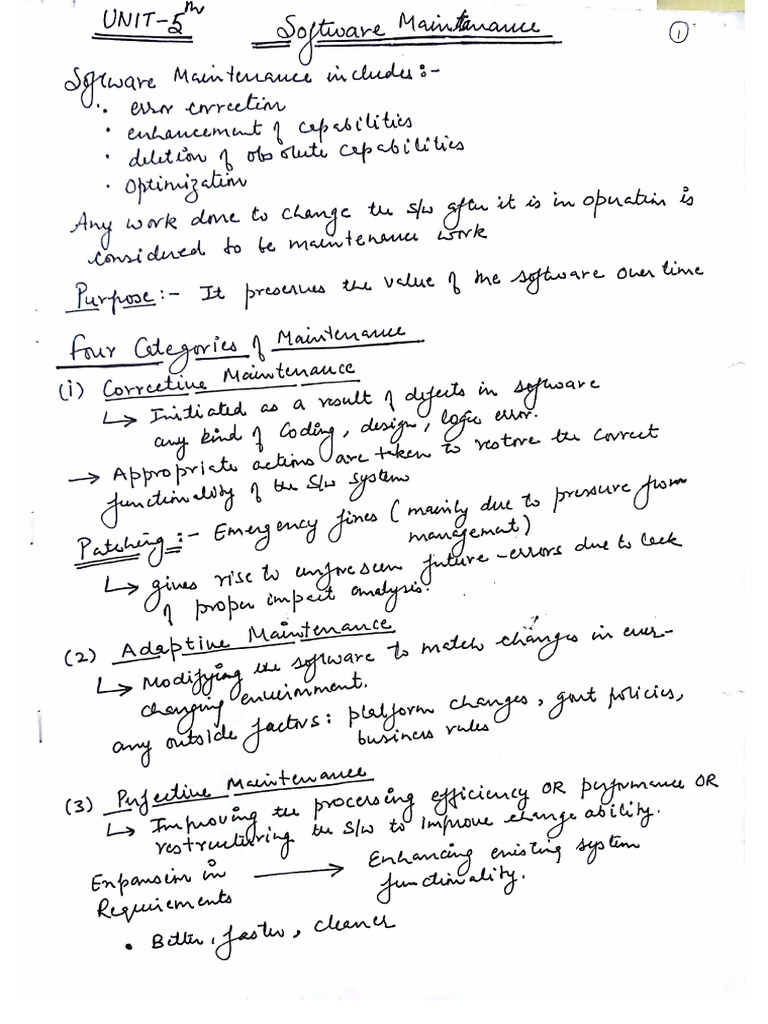 UNIT-5th Software Maintenance 1
Software Maintenance includes:-
• error correction
• enhancement of capabilities
• deletion of obsolete capabilities
• optimization
Any work done to change the s/w after it is in operation is
considered to be maintenance work
Purpose:- It preserves the value of the software over time
Four Categories of Maintenance
(i) Corrective Maintenance
↳ Initiated as a result of defects in software
any kind of coding, design, logic error.
→ Appropriate actions are taken to restore the correct
functionality of the S/w system
Patching:- Emergency fixes (mainly due to pressure from
management)
↳ gives rise to unforeseen future-errors due to lack
of proper impact analysis.
(2) Adaptive Maintenance
↳ Modifying the software to match changes in ever-
changing environment.
any outside factors: platform changes, govt policies,
business rules
(3) Perfective Maintenance
↳ Improving the processing efficiency OR performance OR
restructuring the S/w to improve change ability.
Expansion in → Enhancing existing system
Requirements functionality.
• Better, faster, cleaner